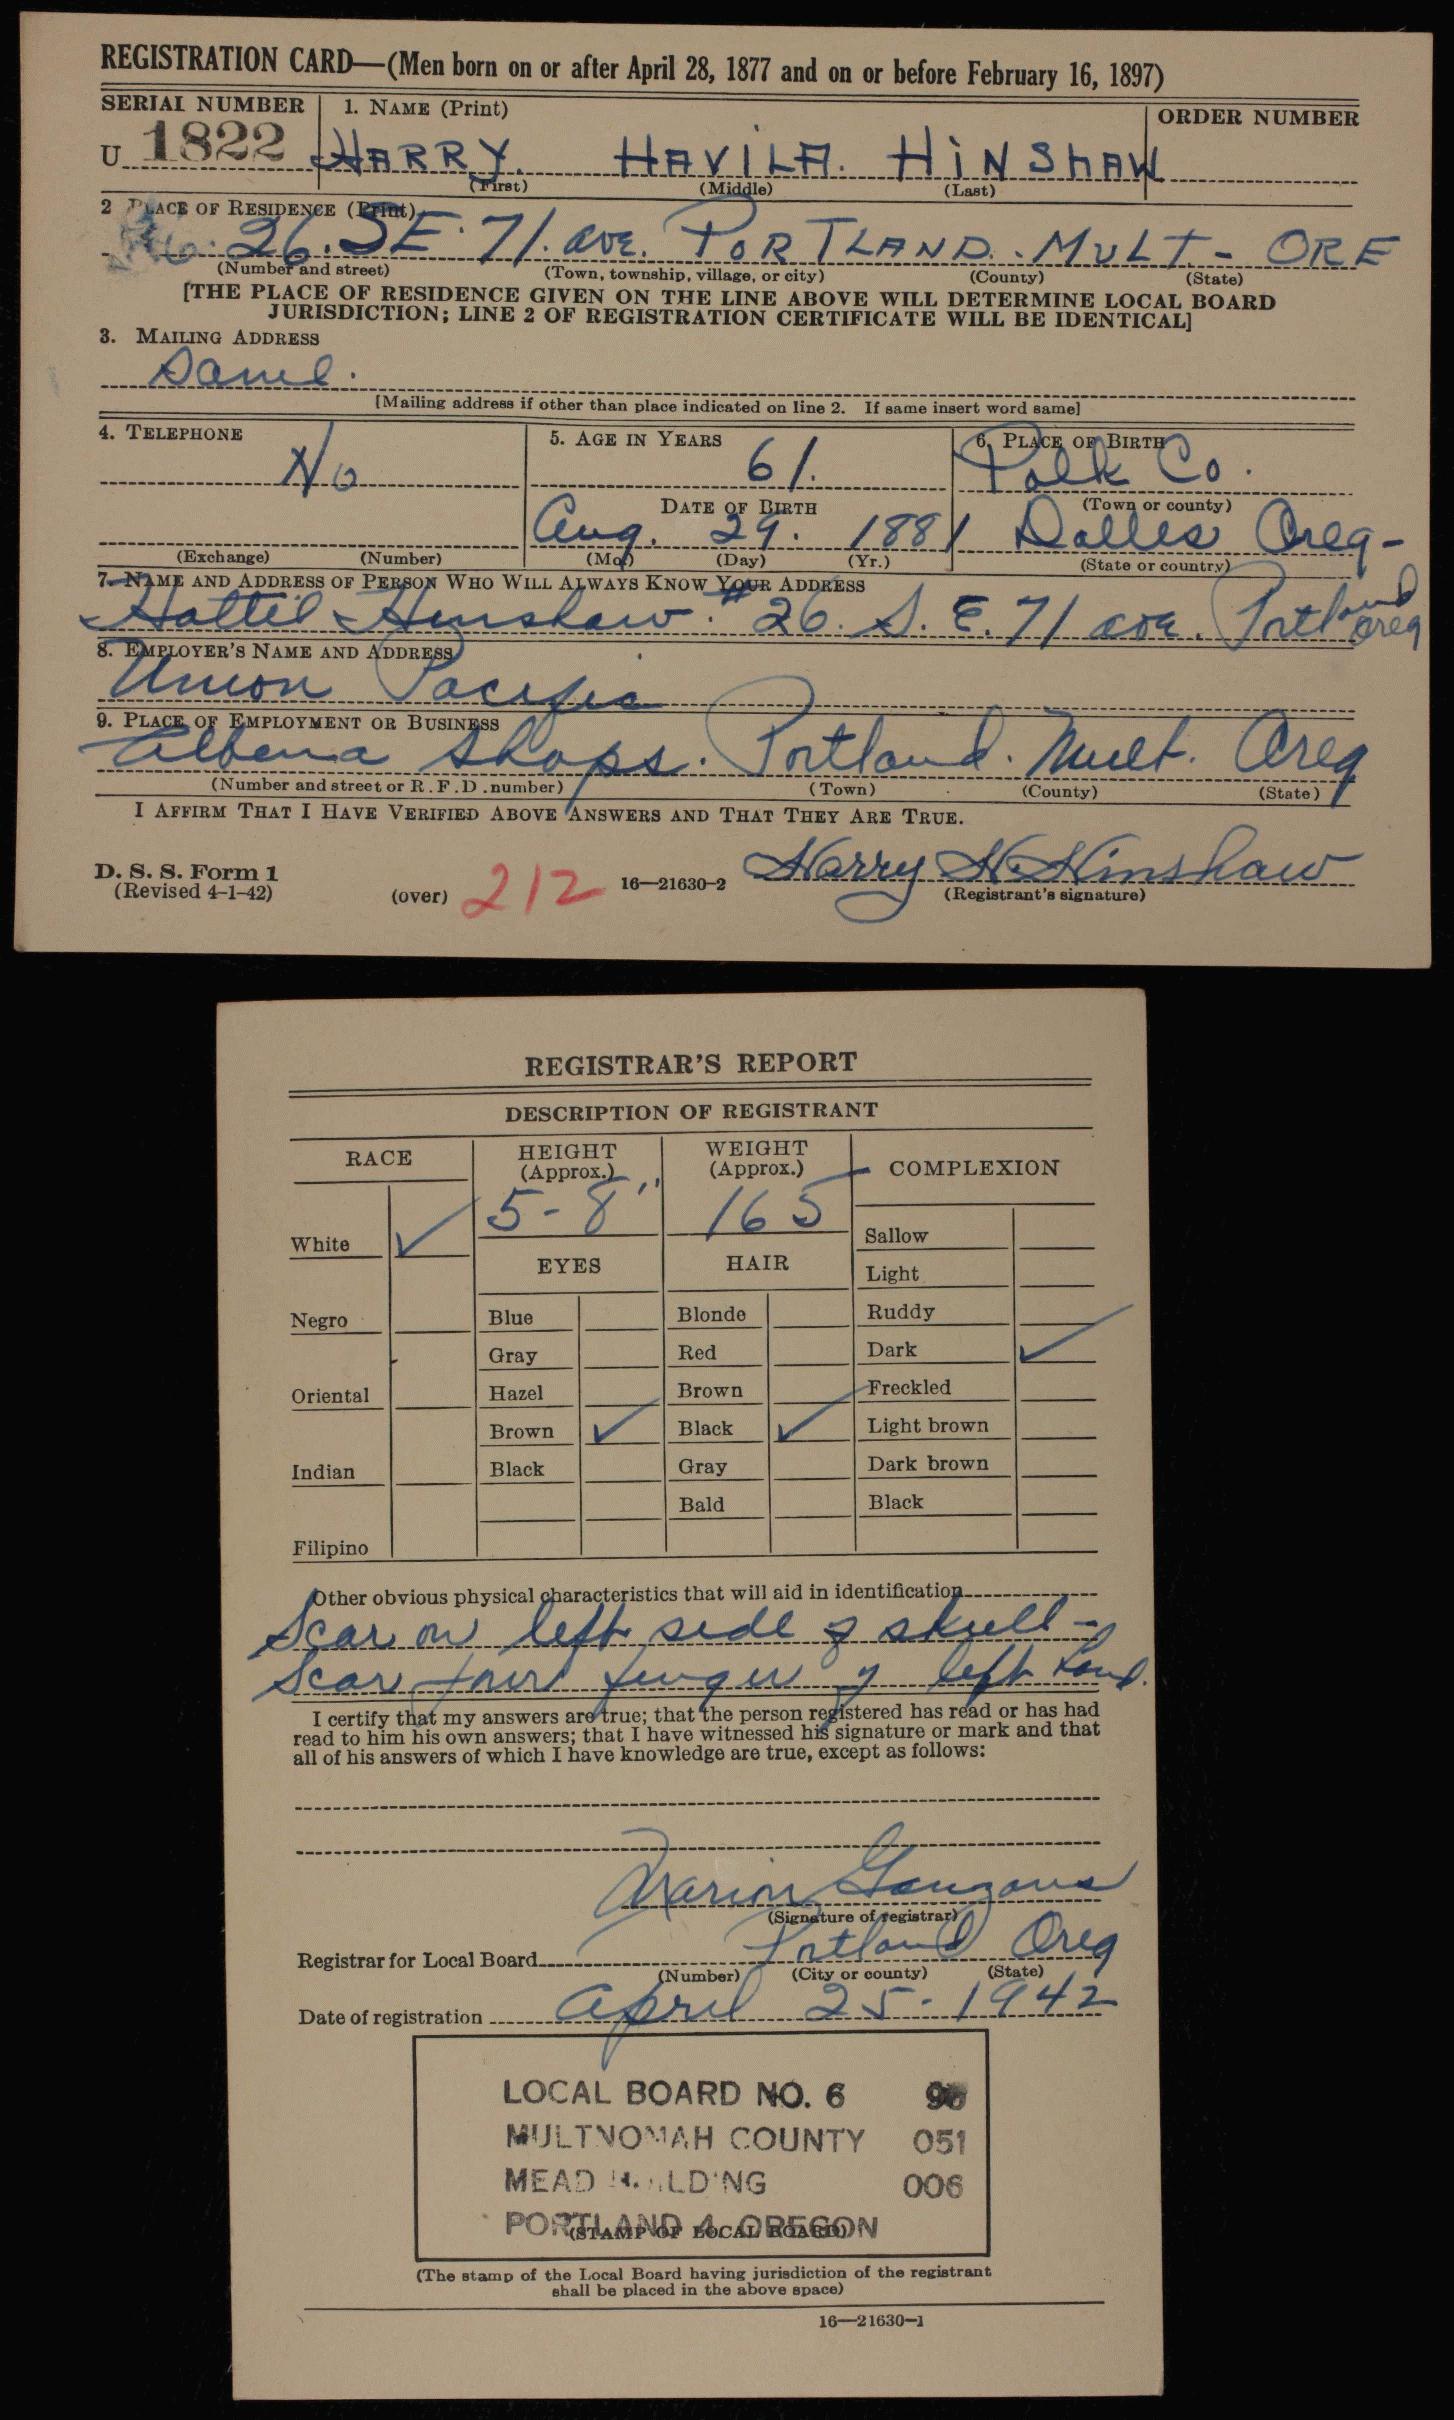 REGISTRATION CARD—(Men born on or after April 28, 1877 and on or before February 16, 1897)
SERIAL NUMBER
1. NAME (Print)
ORDER NUMBER
U 1822
HARRY HAVILA HINSHAW
(First) (Middle) (Last)
2 PLACE OF RESIDENCE (Print)
26. SE. 71. AVE. PORTLAND. MULT - ORE
(Number and street) (Town, township, village, or city) (County) (State)
[THE PLACE OF RESIDENCE GIVEN ON THE LINE ABOVE WILL DETERMINE LOCAL BOARD
JURISDICTION; LINE 2 OF REGISTRATION CERTIFICATE WILL BE IDENTICAL]
3. MAILING ADDRESS
Same.
[Mailing address if other than place indicated on line 2. If same insert word same]
4. TELEPHONE
5. AGE IN YEARS
6. PLACE OF BIRTH
No
61.
Polk Co.
DATE OF BIRTH
(Town or county)
Aug. 29. 1881
Dalles Oreg-
(Exchange) (Number)
(Mo.) (Day) (Yr.)
(State or country)
7. NAME AND ADDRESS OF PERSON WHO WILL ALWAYS KNOW YOUR ADDRESS
Hattie Hinshaw. #26. S. E. 71 ave. Portland Oreg
8. EMPLOYER'S NAME AND ADDRESS
Union Pacific
9. PLACE OF EMPLOYMENT OR BUSINESS
Albena Shops. Portland. Mult. Oreg
(Number and street or R.F.D. number) (Town) (County) (State)
I AFFIRM THAT I HAVE VERIFIED ABOVE ANSWERS AND THAT THEY ARE TRUE.
D. S. S. Form 1
(Revised 4-1-42)
(over)
212
16—21630-2
Harry H. Hinshaw
(Registrant's signature)
REGISTRAR'S REPORT
DESCRIPTION OF REGISTRANT
RACE
HEIGHT
(Approx.)
WEIGHT
(Approx.)
COMPLEXION
5-8"
165
White ✓
EYES
HAIR
Sallow
Light
Negro
Blue
Blonde
Ruddy
Gray
Red
Dark ✓
Oriental
Hazel
Brown
Freckled
Brown ✓
Black ✓
Light brown
Indian
Black
Gray
Dark brown
Bald
Black
Filipino
Other obvious physical characteristics that will aid in identification
Scar on left side of skull -
Scar four finger of left hand.
I certify that my answers are true; that the person registered has read or has had
read to him his own answers; that I have witnessed his signature or mark and that
all of his answers of which I have knowledge are true, except as follows:
Marion
(Signature of registrar)
Registrar for Local Board Portland Oreg
(Number) (City or county) (State)
Date of registration April 25 - 1942
LOCAL BOARD NO. 6
MULTNOMAH COUNTY 051
MEAD BUILDING 006
PORTLAND 4, OREGON
(STAMP OF LOCAL BOARD)
(The stamp of the Local Board having jurisdiction of the registrant
shall be placed in the above space)
16—21630-1